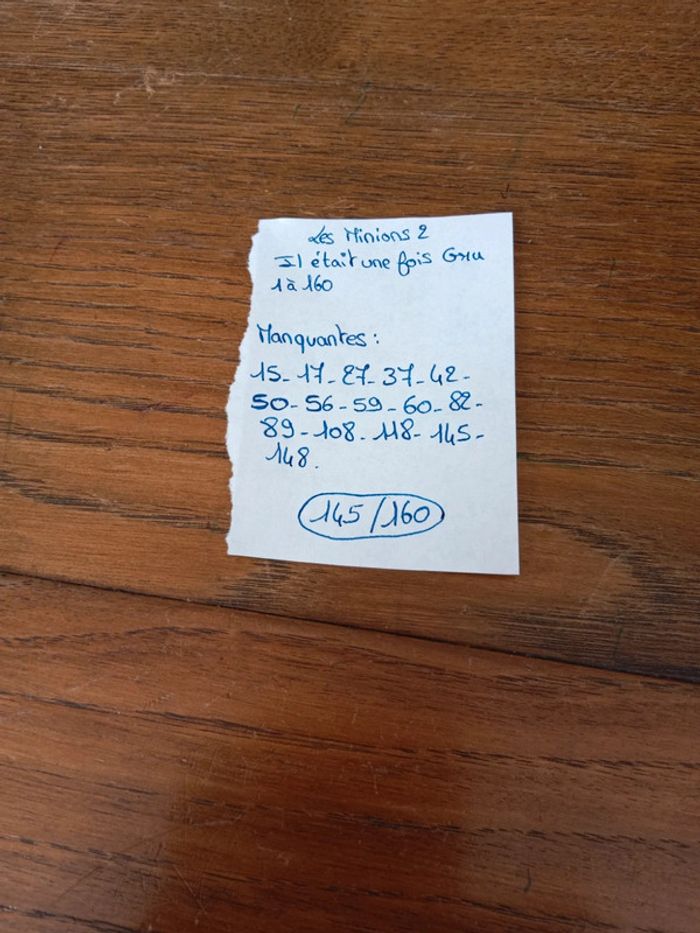 Les Minions 2
Il était une fois Gru
1 à 160
Manquantes :
15 - 17 - 27 - 37 - 42 -
50 - 56 - 59 - 60 - 82 -
89 - 108 - 118 - 145 -
148.
145/160